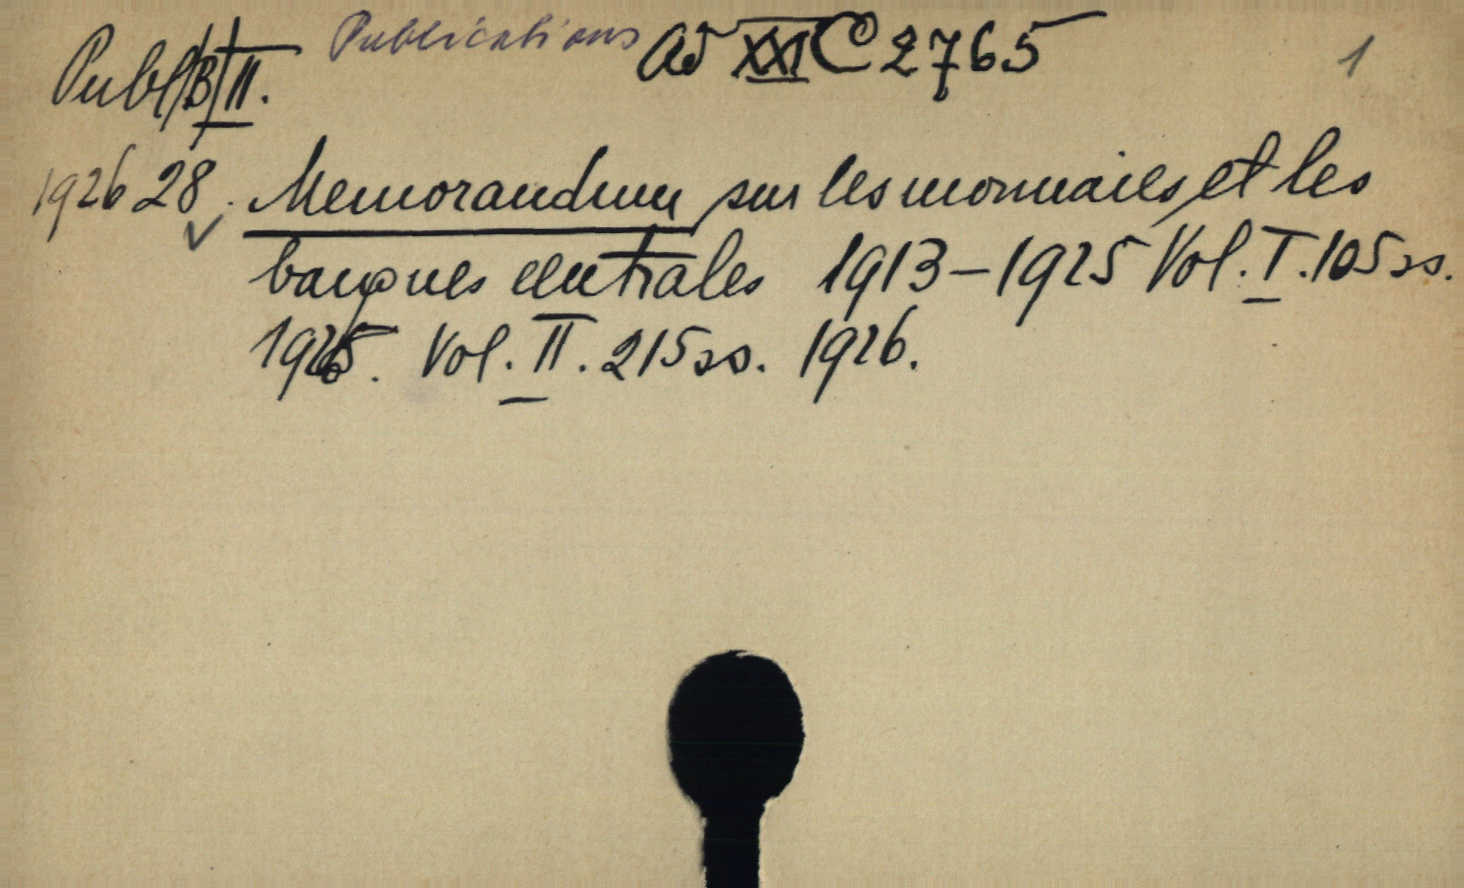 Publ/B/II. Publications Ad XXI C 2765 1
1926 28. Memorandum sur les monnaies et les
banques centrales 1913-1925 Vol. I. 105 ss.
1926. Vol. II. 215 ss. 1926.